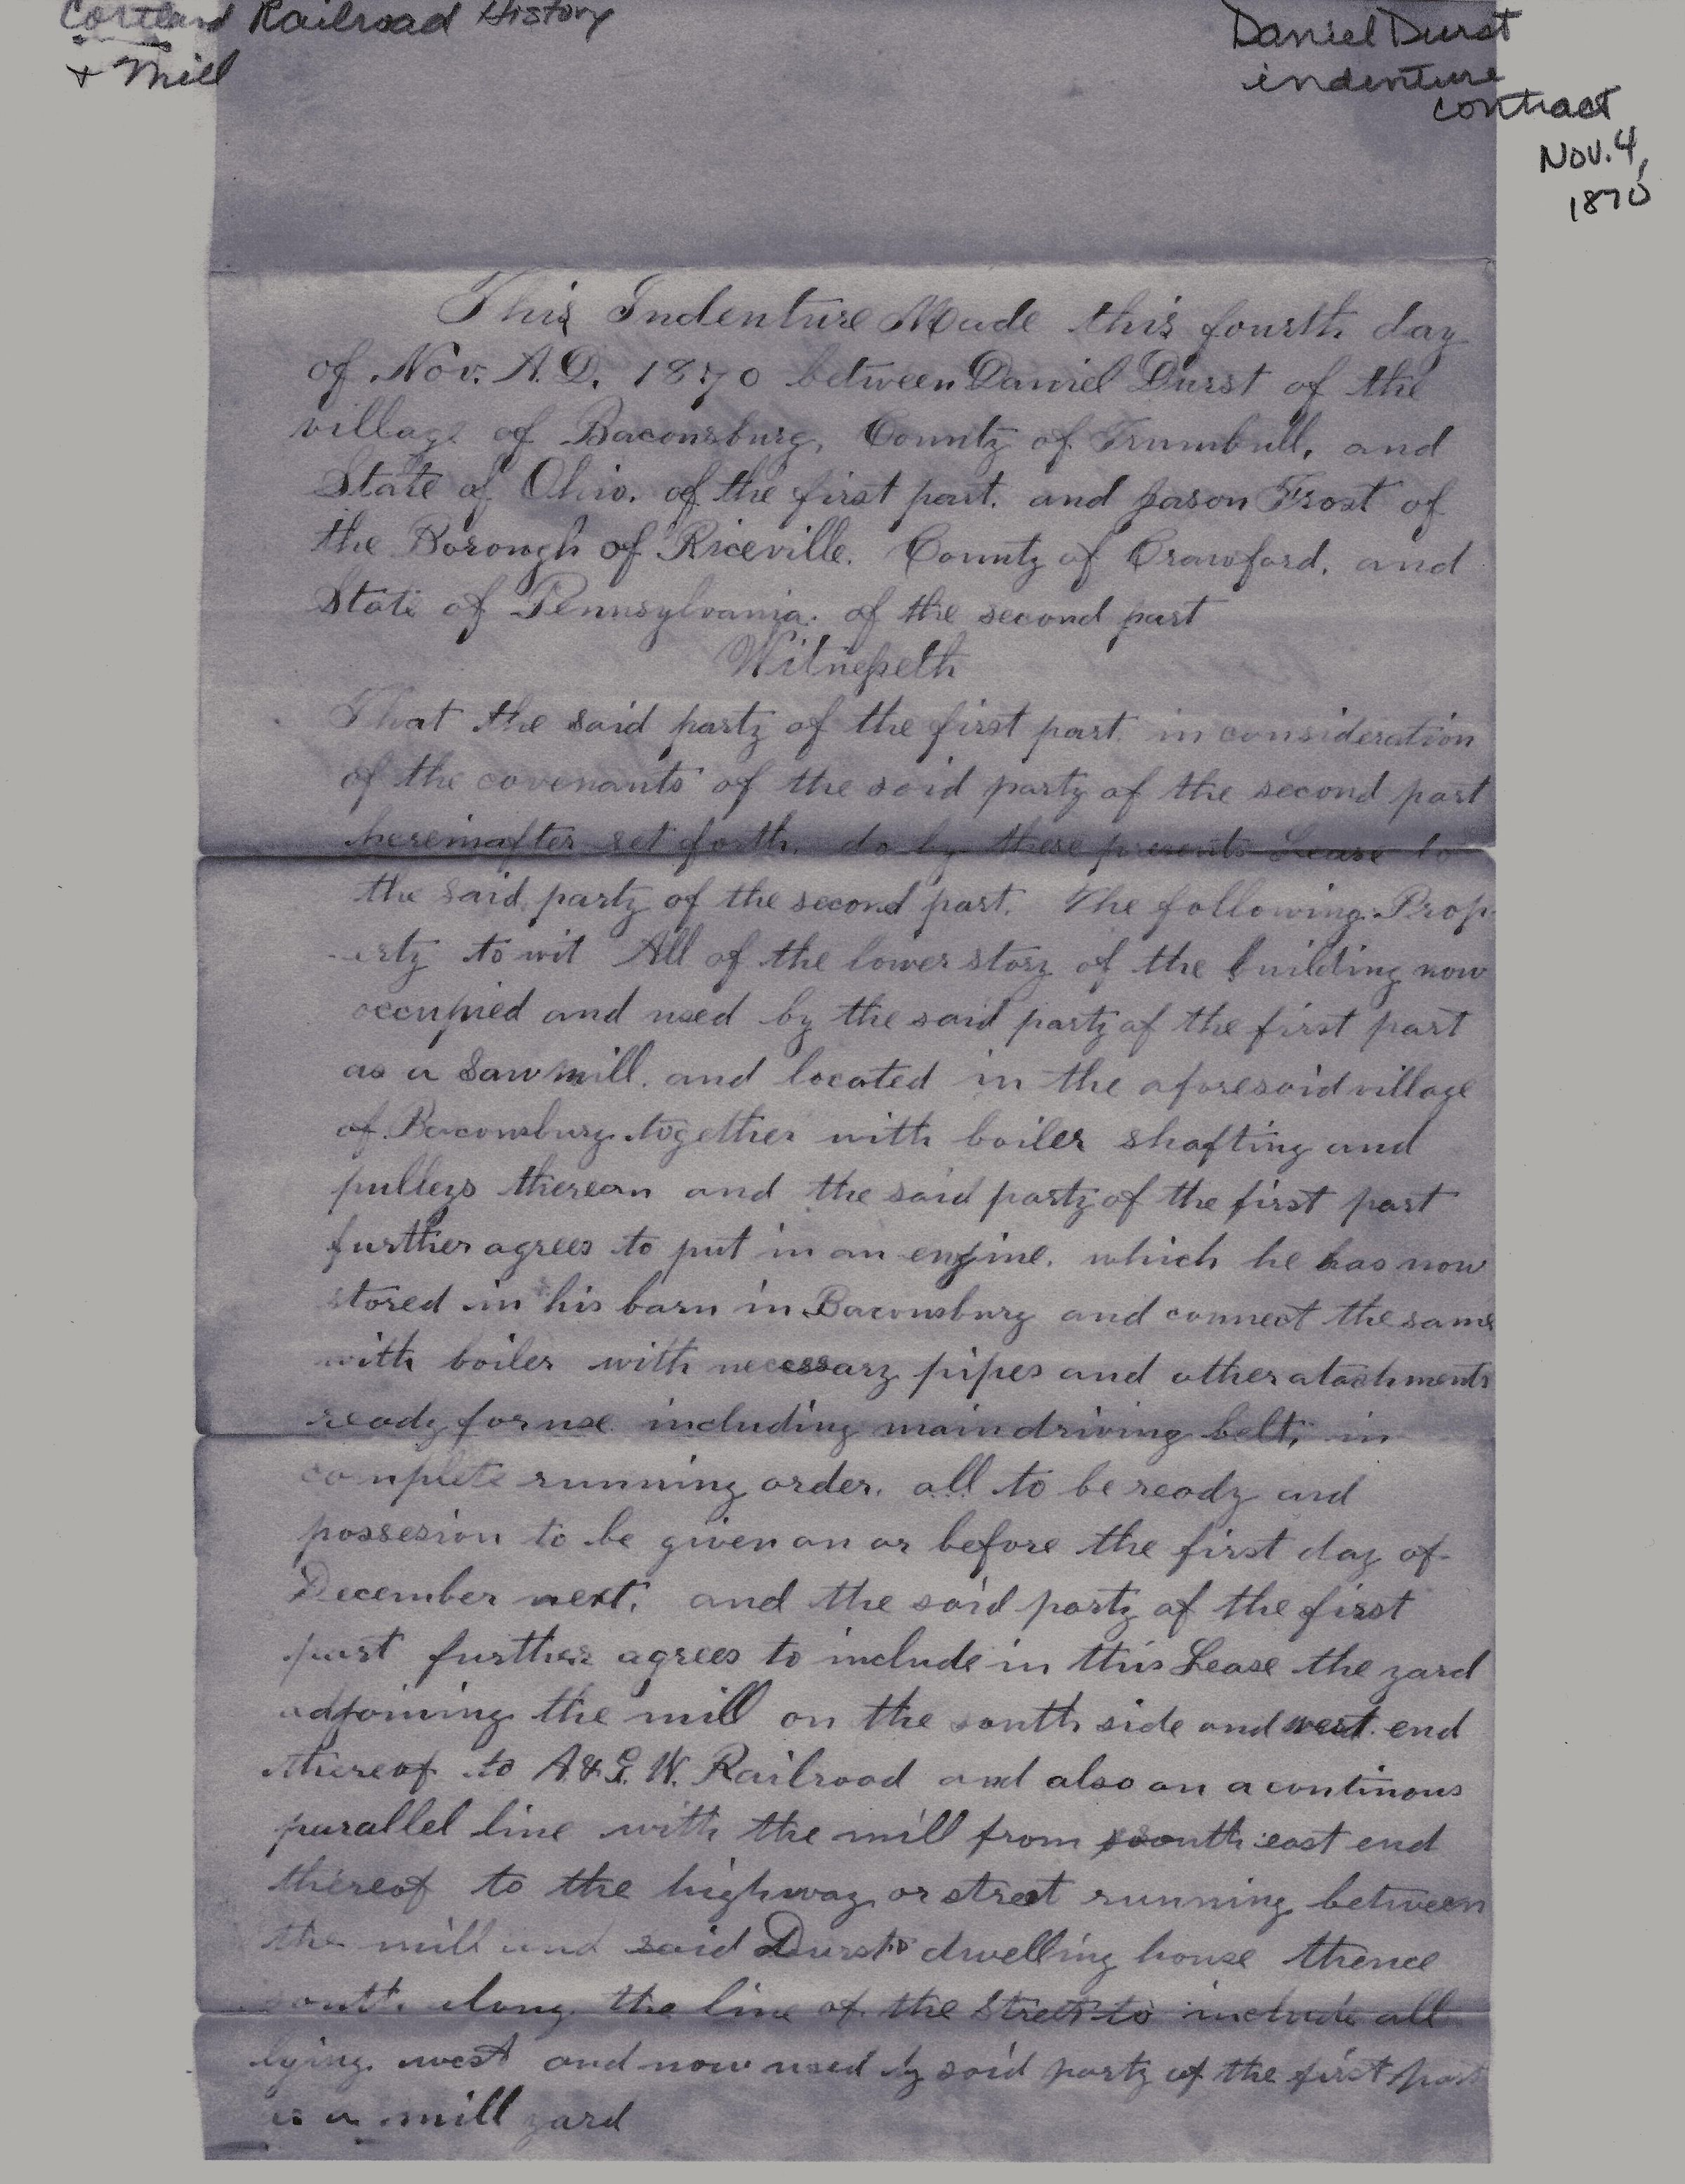 Cortland Railroad History
+ Mill
Daniel Durst
indenture
contract
Nov. 4,
1870
This Indenture Made this fourth day
of Nov. A.D. 1870 between Daniel Durst of the
village of Baconsburg, County of Trumbull, and
State of Ohio. of the first part. and Jason Frost of
the Borough of Riceville. County of Crawford. and
State of Pennsylvania. of the second part
Witnesseth
That the said party of the first part in consideration
of the covenants of the said party of the second part
hereinafter set forth. do by these presents Lease to
the said party of the second part. The following Prop-
-erty to wit All of the lower story of the building now
occupied and used by the said party of the first part
as a Saw mill. and located in the aforesaid village
of Baconsburg together with boiler shafting and
pulleys thereon and the said party of the first part
further agrees to put in an engine. which he has now
stored in his barn in Baconsburg and connect the same
with boiler with necessary pipes and other atachments
ready for use including main driving belt, in
complete running order. all to be ready and
possesion to be given on or before the first day of
December next, and the said party of the first
part further agrees to include in this Lease the yard
adjoining the mill on the south side and west end
thereof to A. & G. W. Railroad and also on a continous
parallel line with the mill from south east end
thereof to the highway or street running between
the mill and said Durst's dwelling house thence
south along the line of the Street to include all
lying west and now used by said party of the first part
as a mill yard